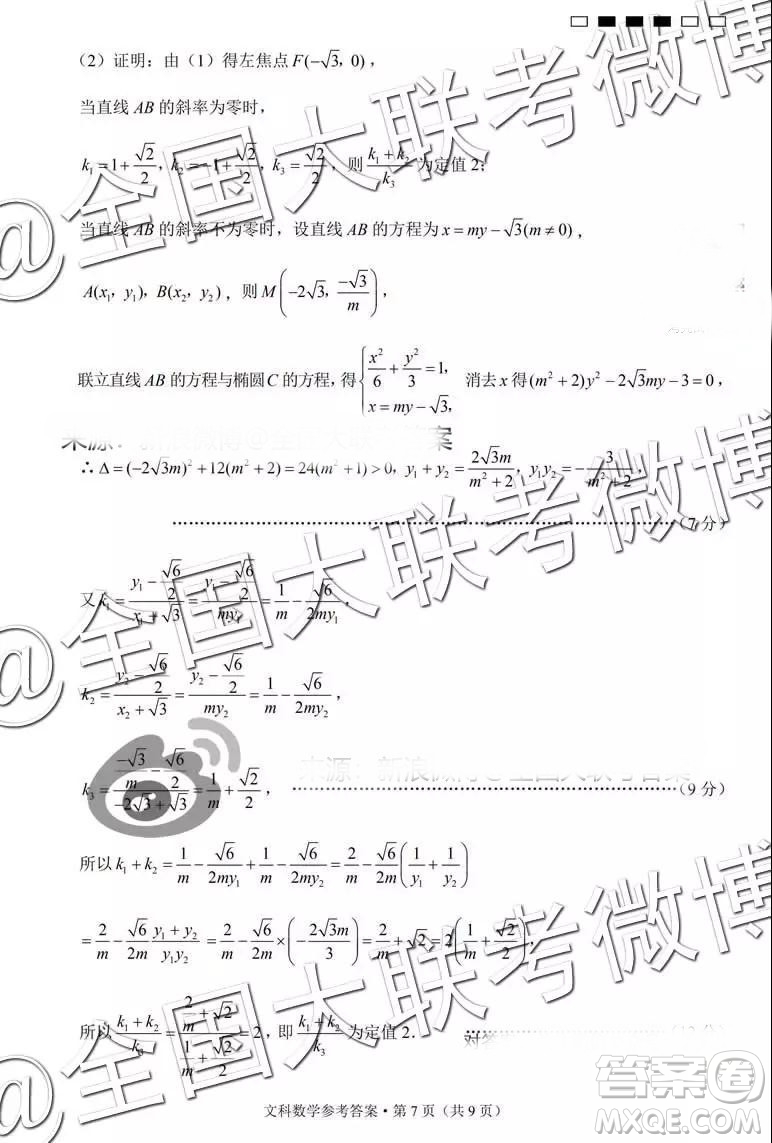 (2) 证明：由(1)得左焦点 F(−√3，0)，
当直线 AB 的斜率为零时，
k₁=1+√2/2，k₂=−1+√2/2，k₃=√2/2，则 (k₁+k₂)/k₃ 为定值 2；
当直线 AB 的斜率不为零时，设直线 AB 的方程为 x=my−√3(m≠0)，
A(x₁，y₁)，B(x₂，y₂)，则 M(−2√3，−√3/m)，
联立直线 AB 的方程与椭圆 C 的方程，得{x²/6+y²/3=1，x=my−√3，消去 x 得(m²+2)y²−2√3my−3=0，
来源：新浪微博@全国大联考答案
∴Δ=(−2√3m)²+12(m²+2)=24(m²+1)>0，y₁+y₂=2√3m/(m²+2)，y₁y₂=−3/(m²+2)，
……(7 分)
又 k₁=(y₁−√6/2)/(x₁+√3)=(y₁−√6/2)/(my₁)=1/m−√6/(2my₁)，
k₂=(y₂−√6/2)/(x₂+√3)=(y₂−√6/2)/(my₂)=1/m−√6/(2my₂)，
来源：新浪微博@全国大联考答案
k₃=(−√3/m−√6/2)/(−2√3+√3)=1/m+√2/2，……(9 分)
所以 k₁+k₂=1/m−√6/(2my₁)+1/m−√6/(2my₂)=2/m−√6/(2m)(1/y₁+1/y₂)
=2/m−√6/(2m)·(y₁+y₂)/(y₁y₂)=2/m−√6/(2m)×(−2√3m/3)=2/m+√2=2(1/m+√2/2)，
所以 (k₁+k₂)/k₃=(2/m+√2)/(1/m+√2/2)=2，即 (k₁+k₂)/k₃ 为定值 2．
文科数学参考答案·第 7 页（共 9 页）
@全国大联考微博
@全国大联考微博
答案卷
MXQE.COM